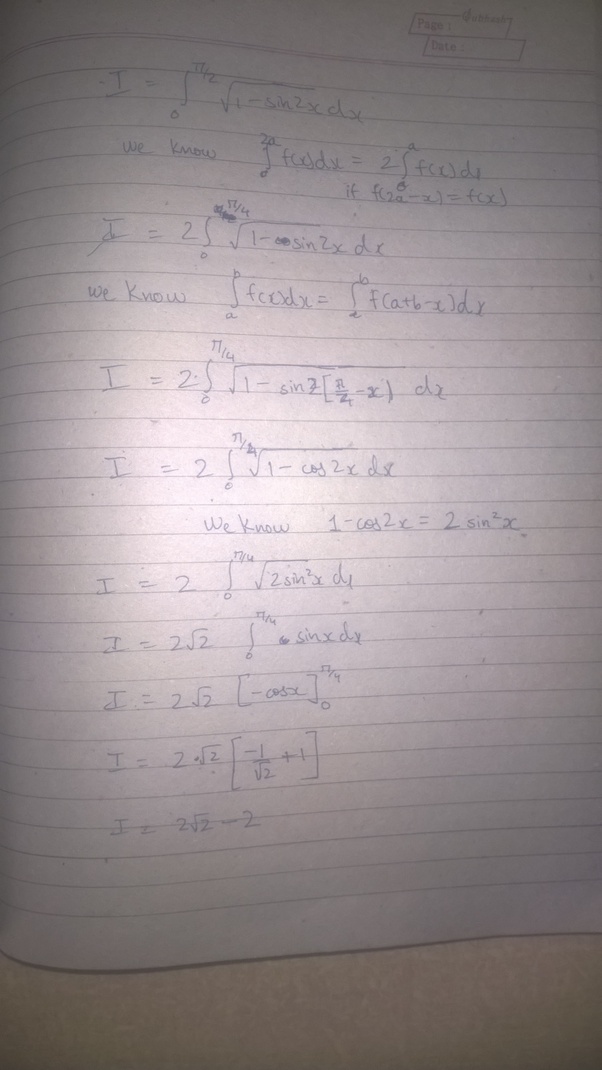 Page:
Date:
I = ∫₀^{π/2} √(1-sin2x) dx
we know ∫₀^{2a} f(x)dx = 2∫₀^{a} f(x)dx
if f(2a-x) = f(x)
I = 2∫₀^{π/4} √(1-sin2x) dx
we know ∫ₐ^{b} f(x)dx = ∫ₐ^{b} f(a+b-x)dx
I = 2·∫₀^{π/4} √(1-sin2[π/4-x)] dx
I = 2∫₀^{π/4} √(1-cos2x) dx
We know 1-cos2x = 2 sin²x
I = 2 ∫₀^{π/4} √(2sin²x) dx
I = 2√2 ∫₀^{π/4} sinx dx
I = 2√2 [-cosx]₀^{π/4}
I = 2·√2 [-1/√2 + 1]
I = 2√2 - 2